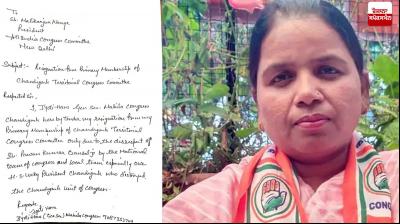 To
Sh. Malikarjun Kharge
President
All India Congress Committee
New Delhi
Subject:- Resignation from Primary Membership of
Chandigarh Territorial Congress Committee
Respected Sir,
I, Jyoti Hans Gen Sec. Mahila Congress
Chandigarh here by tender my resignation from my
Primary Membership of Chandigarh Territorial
Congress Committee only due to the disrespect of
Sh. Pawan Kumar Bansal ji by the National
team of congress and local team especially our
H.S. Lucky President Chandigarh who destroyed
the Chandigarh unit of congress.
Regards,
Jyoti Hans
Jyoti Hans (Gen Sec) Mahila Congress
CON